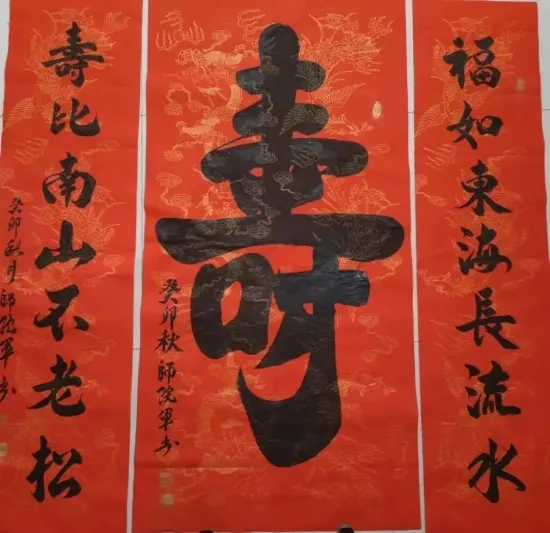 福如東海長流水
壽
癸卯秋師院軍书
壽比南山不老松
癸卯秋月師院軍书